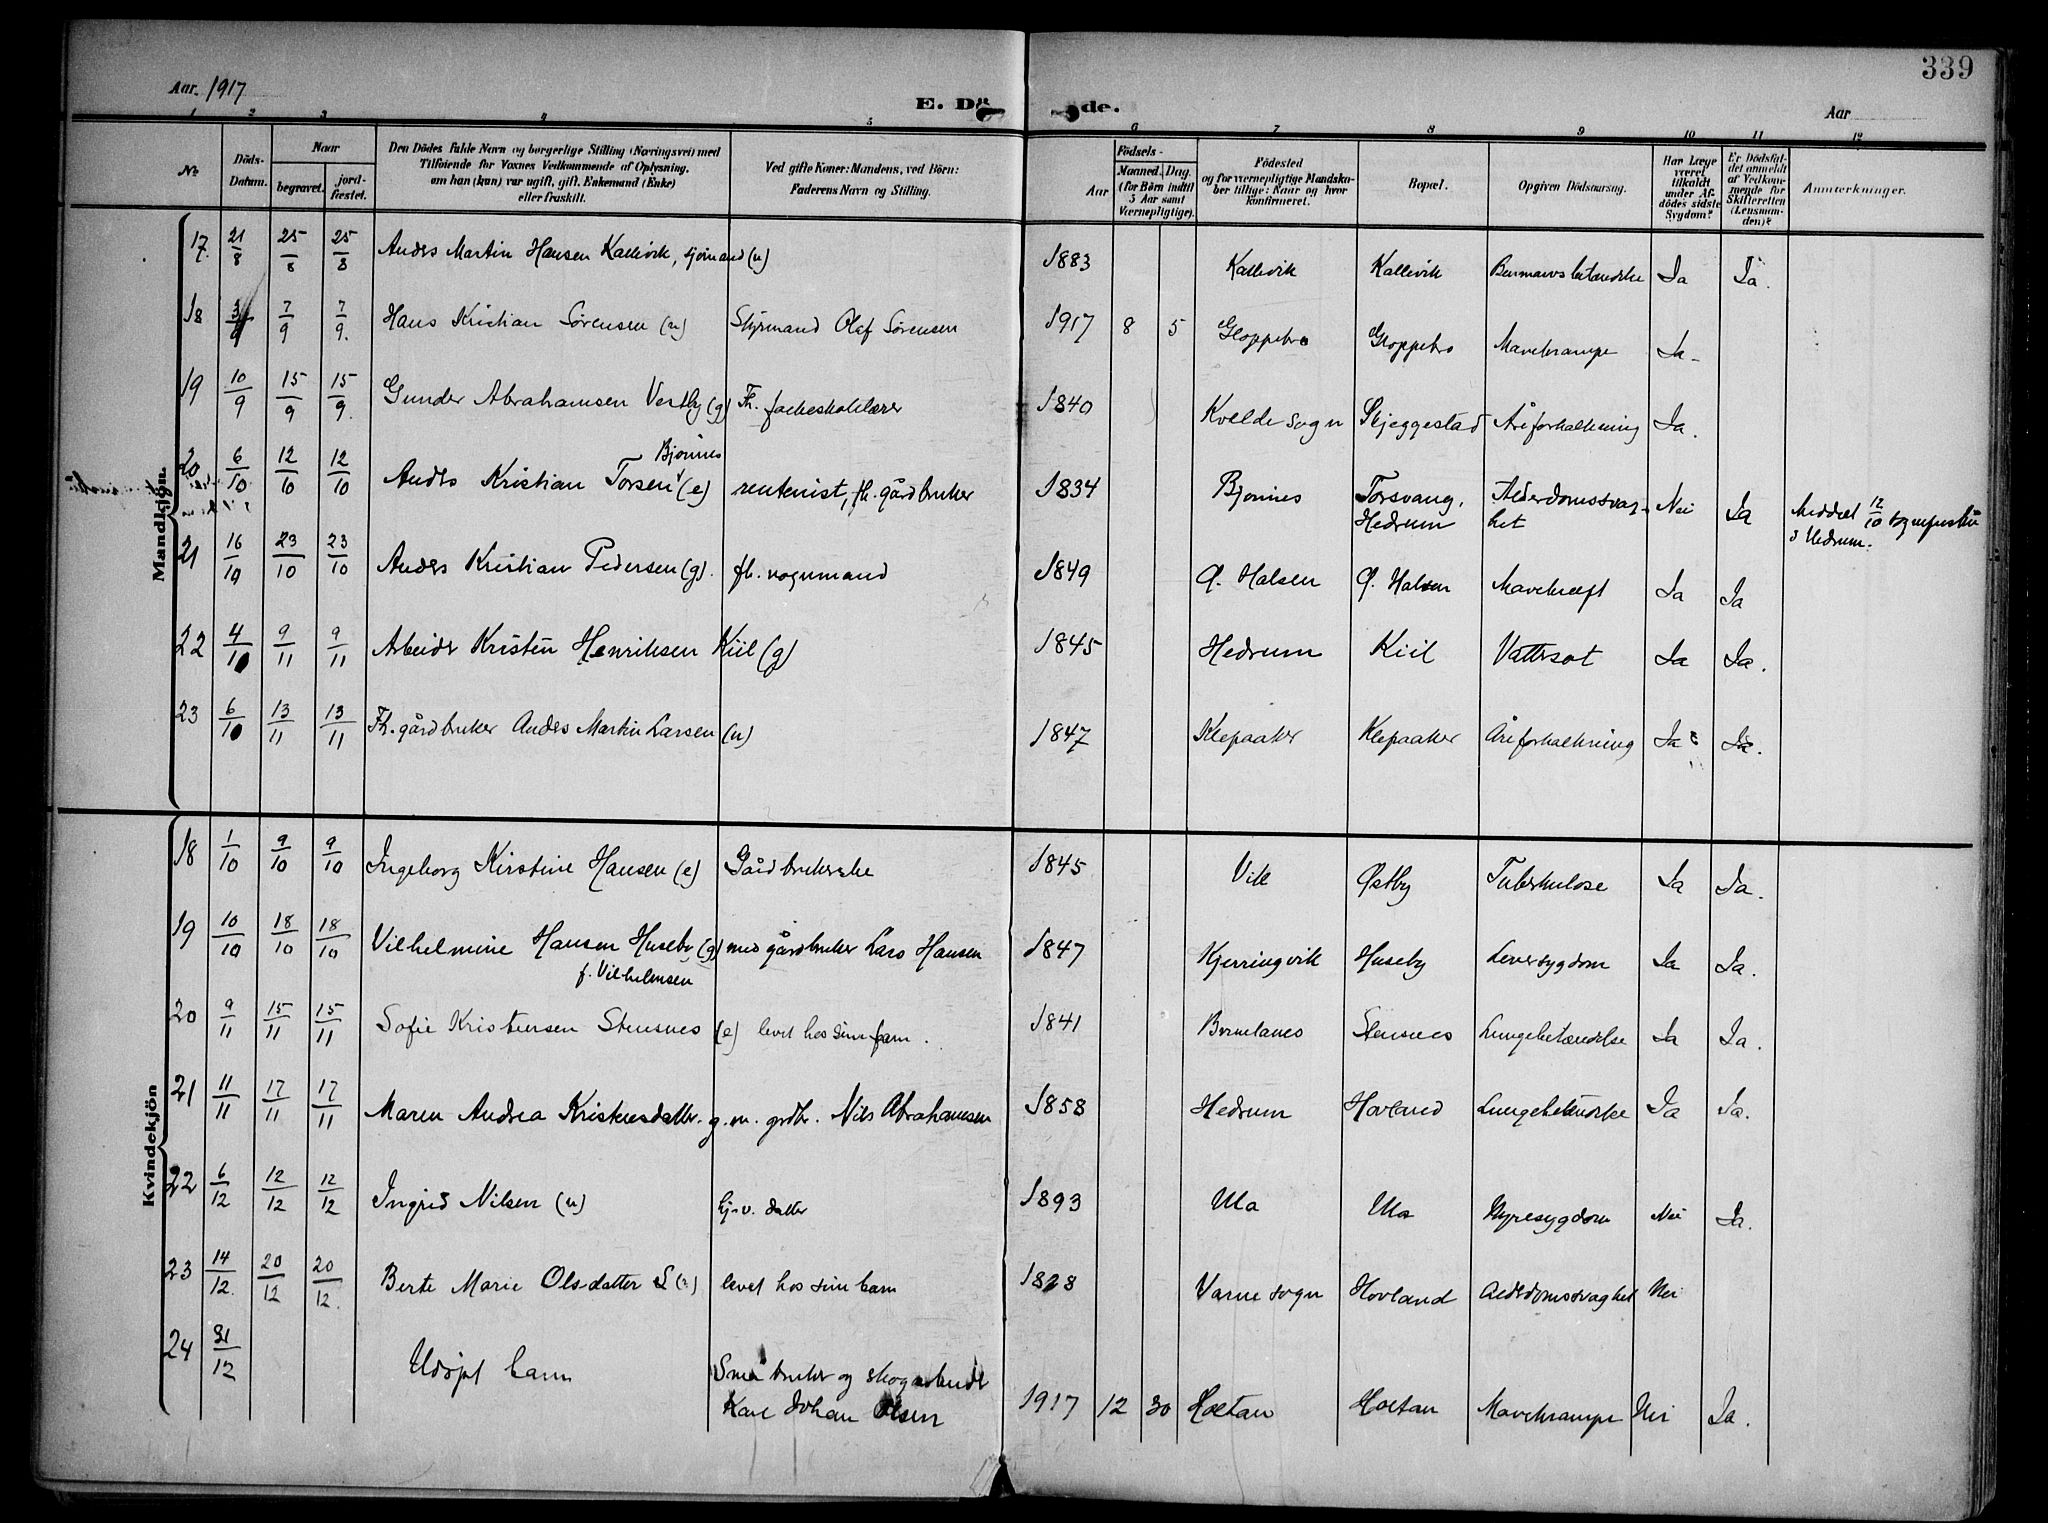 339
Aar. 1917
E. Dö de.
Aar
1 2 3 4 5 6 7 8 9 10 11 12
No.
Döds-Datum.
Naar
begravet.
jord-fæstet.
Den Dödes fulde Navn og borgerlige Stilling (Næringsvei) med
Tilföiende for Voxnes Vedkommende af Oplysning,
om han (hun) var ugift, gift, Enkemand (Enke)
eller fraskilt.
Ved gifte Koner: Mandens, ved Börn:
Faderens Navn og Stilling.
Födsels-
Aar
Maaned. Dag.
(for Börn indtil
3 Aar samt
Værnepligtige).
Födested
og for værnepligtige Mandska-
ber tillige: Naar og hvor
konfirmeret.
Bopæl.
Opgiven Dödsaarsag.
Har Læge
været
tilkaldt
under Af-
dödes sidste
Sygdom?
Er Dödsfal-
det anmeldt
af Vedkom-
mende for
Skifteretten
(Lensman-
den)?
Anmærkninger.
Mandkjön.
17. 21/8 25/8 25/8 Anders Martin Hansen Kallevik, sjömand (u) 1883 Kallevik Kallevik Ja Ja.
18 3/9 7/9 7/9. Hans Kristian Sørensen (u) Styrmand Olaf Sørensen 1917 8 5 Gloppebro Gloppebro Mavekrampe Ja
19 10/9 15/9 15/9. Gunder Abrahamsen Vestby (g) Fh. folkeskolelærer 1840 Kvelde sogn Skjeggestad Åreforkalkning Ja.
Bjønnes
20 6/10 12/10 12/10 Anders Kristian Torsen (e) rentenist, fh. gårdbruker 1834 Bjønnes Torsvang, Alderdomssvag- Nei Ja Meddelt 12/10
Hedrum het i Hedrum.
21 16/10 23/10 23/10 Anders Kristian Pedersen (g). fh. vognmand 1849 Ø. Halsen Ø. Halsen Mavekræft Ja Ja
22 4/10 9/11 9/11 Arbeider Kristen Henriksen Kiil (g) 1845 Hedrum Kiil Vattersot Ja Ja.
23 6/10 13/11 13/11 Fh. gårdbruker Anders Martin Larsen (u) 1847 Klepaaker Klepaaker Åreforkalkning Ja Ja.
Kvindekjön
18 1/10 9/10 9/10 Ingeborg Kirstine Hansen (e) Gårdbrukerske 1845 Vik Østby Tuberkulose Ja Ja.
19 10/10 18/10 18/10 Vilhelmine Hansen Huseby (g) med gårdbruker Lars Hansen 1847 Kjerringvik Huseby Leversygdom Ja Ja.
f. Vilhelmsen
20 9/11 15/11 15/11 Sofie Kristensen Stensnes (e) levet hos sine barn. 1841 Stensnes Lungebetændelse Ja Ja.
21 11/11 17/11 17/11 Maren Andrea Kristensdatter. g. m. grdbr. Nils Abrahamsen 1858 Hedrum Hovland Lungebetændelse Ja Ja.
22 6/12 12/12 12/12 Ingrid Nilsen (u) hj.v. datter 1893 Ula Ula Nyresygdom Nei Ja.
23 14/12. 20/12 20/12. Berte Marie Olsdatter levet hos sine barn 1828 Varne sogn Hovland Alderdomssvaghet Nei
24 31/12 Udøpt barn Småbruker og skogarbeider
Karl Johan Olsen 1917 12 30 Holtan Holtan Mavekrampe Nei Ja.